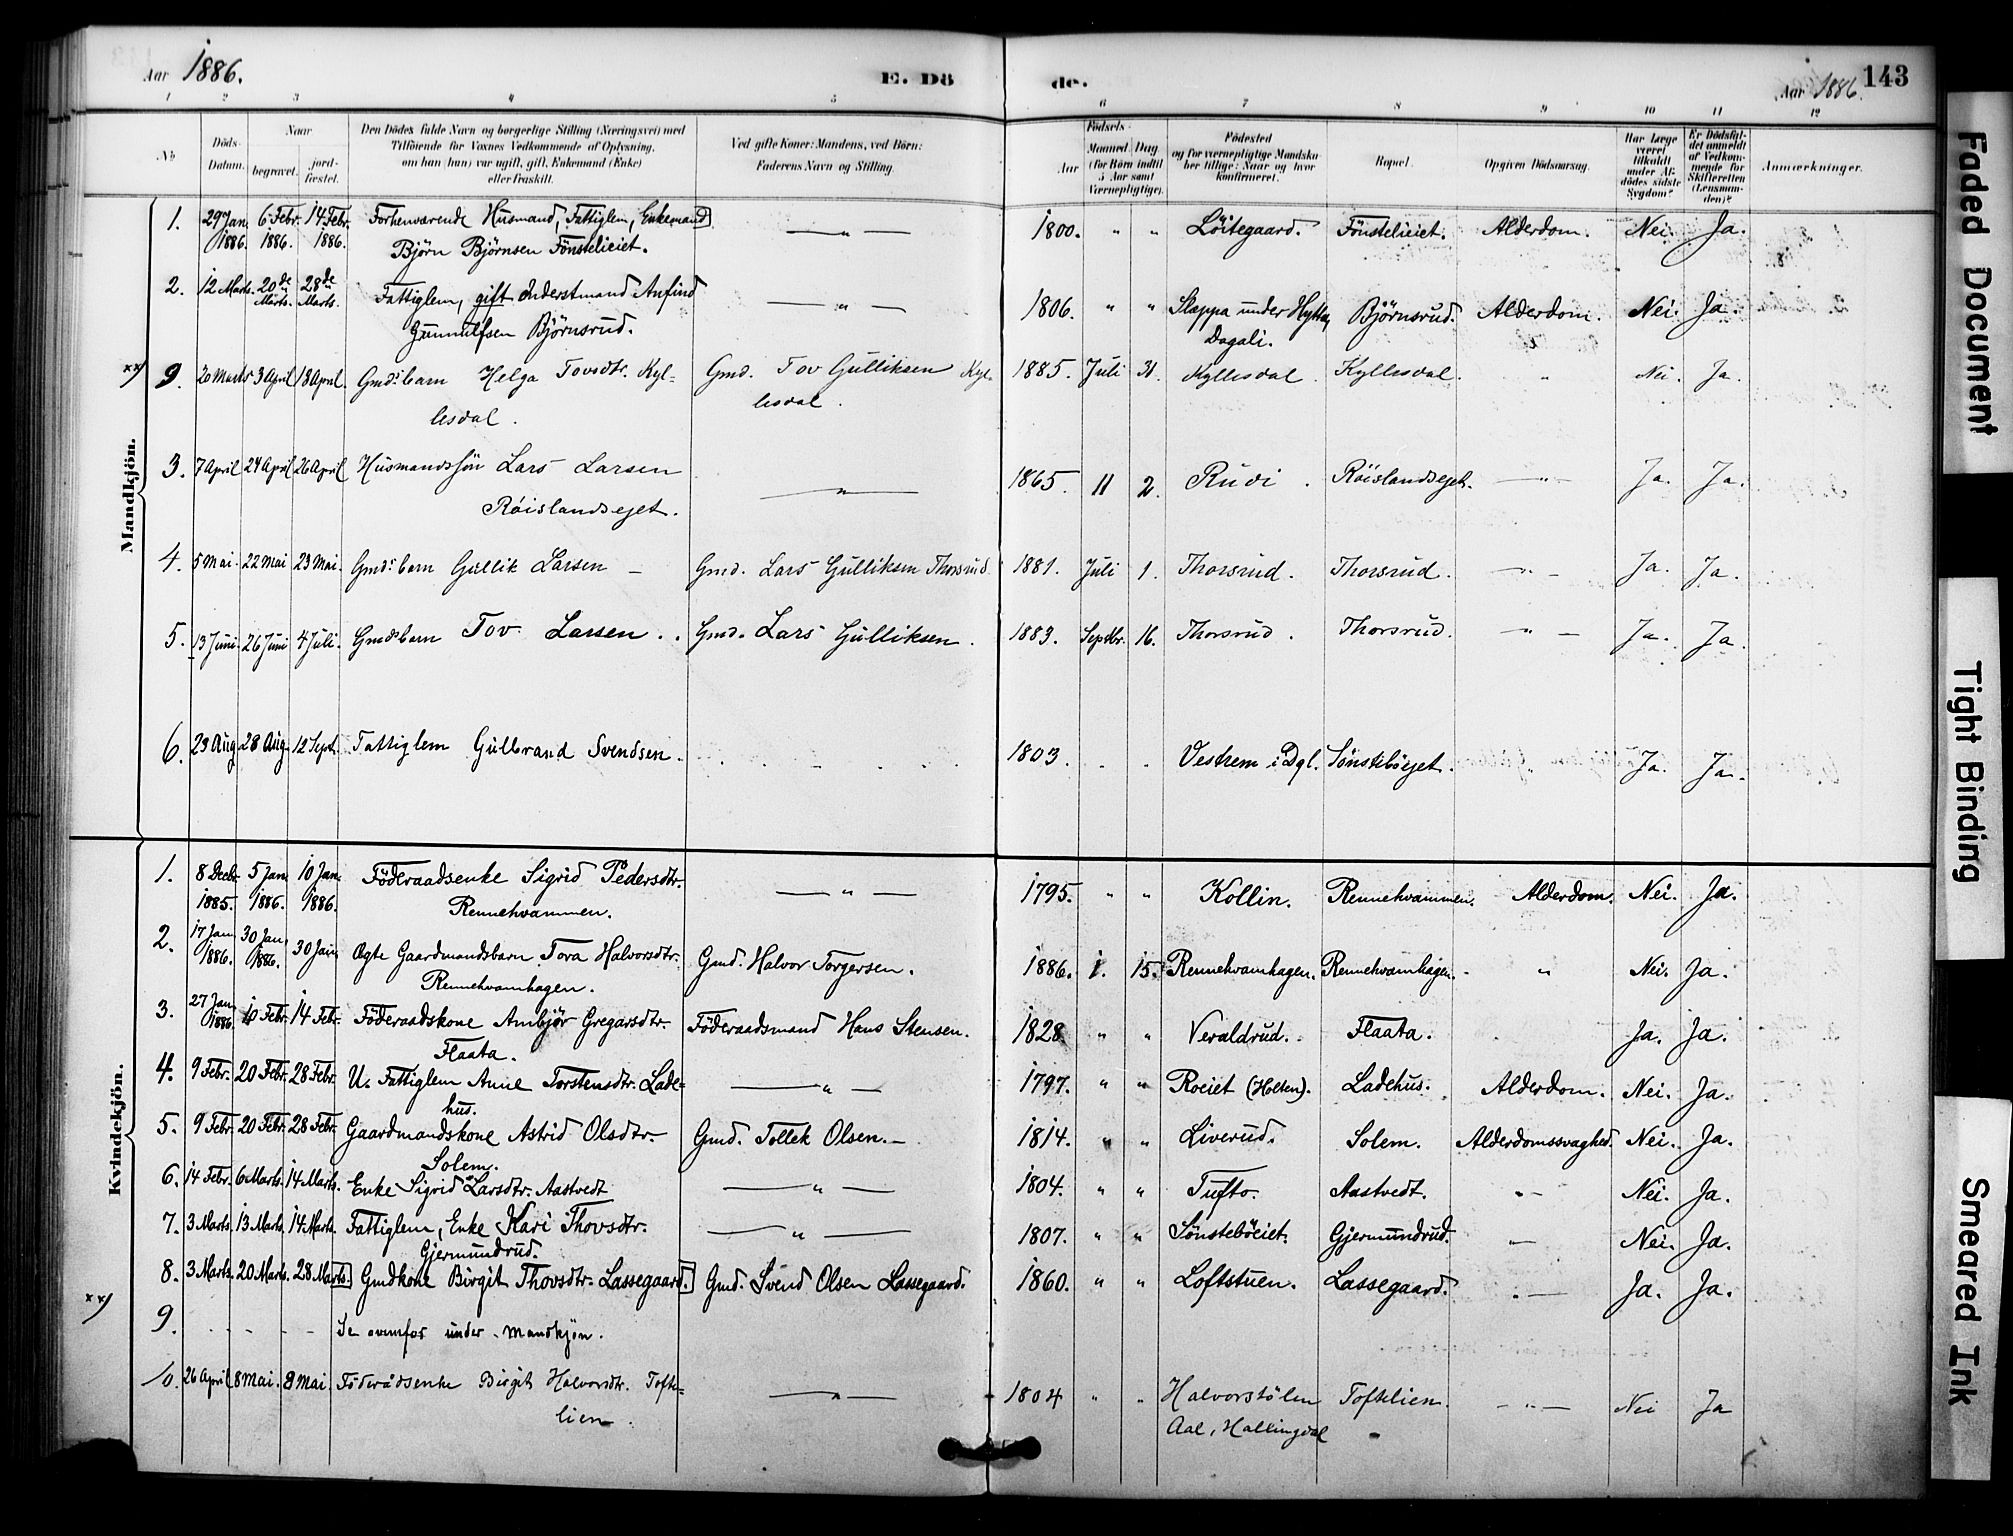 Aar 1886.
E. Dö
de.
Aar 1886.
143
1 2 3 4 5 6 7 8 9 10 11 12
No
Döds-Datum.
Naar
begravet.
jordfæstet.
Den Dödes fulde Navn og borgerlige Stilling (Næringsvei) med
Tilföiende for Voxnes Vedkommende af Oplysning,
om han (hun) var ugift, gift, Enkemand (Enke)
eller fraskilt.
Ved gifte Koner: Mandens, ved Börn:
Faderens Navn og Stilling.
Födsels-
Aar
Maaned. Dag
(for Börn indtil
5 Aar samt
Værnepligtige).
Födested
og for værnepligtige Mandskaber tillige: Naar og hvor
konfirmeret.
Bopæl.
Opgiven Dödsaarsag.
Har Læge
været
tilkaldt
under Afdödes sidste
Sygdom?
Er Dödsfaldet anmeldt
af Vedkommende for
Skifteretten
(Lensmanden)?
Anmærkninger.
Mandkjön.
1. 29 Jan. 1886. 6 Febr. 1886. 14 Febr. 1886. Forhenværende Husmand, Fattiglem, Enkemand
Björn Björnsen Fönstelieiet. — " — 1800. " " Löitegaard. Fönstelieiet. Alderdom. Nei. Ja.
2. 12 Marts. 20de Marts. 28de Marts. Fattiglem, gift Inderstmand Anfind
Gunnulfsen Björnsrud. — " — 1806. " " Slappa under Hytta, Dagali. Björnsrud. Alderdom. Nei. Ja.
xx) 9. 20 Marts 3 April 18 April. Gmds barn Helga Tovsdtr. Kyllesdal. Gmd. Tov Gulliksen Kyllesdal. 1885. Juli 31. Kyllesdal. Kyllesdal. " Nei. Ja.
3. 7 April 24 April 26 April Husmandssön Lars Larsen
Röislandsejet. — " — 1865. 11 2. Rudi. Röislandsejet. — " — Ja. Ja.
4. 5 Mai. 22 Mai 23 Mai. Gmds barn Gullik Larsen — Gmd. Lars Gulliksen Thorsrud. 1881. Juli 1. Thorsrud. Thorsrud. — " — Ja. Ja.
5. 13 Juni. 26 Juni 4 Juli. Gmdsbarn Tov Larsen. Gmd. Lars Gulliksen. 1883. Septbr. 16. Thorsrud. Thorsrud. — " — Ja. Ja.
6. 23 Aug 28 Aug. 12 Sept. Fattiglem Gulbrand Svendsen. 1803. Vestrem i Dgl. Sönsteböejet. " Ja. Ja.
Kvindekjön.
1. 8 Decbr 1885. 5 Jan. 1886. 10 Jan. 1886. Föderaadsenke Sigrid Pedersdtr.
Rennehvammen. — " — 1795. " " Kollin. Rennehvammen. Alderdom. Nei. Ja.
2. 17 Jan. 1886. 30 Jan. 1886. 30 Jan. Ægte Gaardmandsbarn Tora Halvorsdtr.
Rennehvamhagen. Gmd. Halvor Torgersen. 1886. 1. 15. Rennehvamhagen. Rennehvamhagen. " Nei. Ja.
3. 27 Jan. 1886. 10 Febr. 14 Febr. Föderaadskone Ambjör Gregarsdtr.
Flaata. Föderaadsmand Hans Stensen. 1828. " " Veraldrud. Flaata. Ja. Ja.
4. 9 Febr. 20 Febr. 28 Febr. U. Fattiglem Anne Torstensdtr. Ladehus. — " — 1797. " " Roeiet (Holten). Ladehus. Alderdom. Nei. Ja.
5. 9 Febr. 20 Febr. 28 Febr. Gaardmandskone Astrid Olsdtr.
Solem. Gmd. Tollek Olsen. — 1814. " " Liverud. Solem. Alderdomssvaghed. Nei. Ja.
6. 14 Febr. 6 Marts. 14 Marts. Enke Sigrid Larsdtr. Aastvedt — " — 1804. " " Tufto. Aastvedt. " — Nei. Ja.
7. 3 Marts. 13 Marts. 14 Marts. Fattiglem, Enke Kari Thovsdtr.
Gjermundrud. — " — 1807. " " Sönsteböeiet. Gjermundrud. " — Nei. Ja.
8. 3 Marts. 20 Marts. 28 Marts. Gmdkone Birgit Thovsdtr. Lassegaard. Gmd. Svend Olsen Lassegaard. 1860. " " Loftstuen. Lassegaard. " — Ja. Ja.
xx) 9. - - - - Se ovenfor under Mandkjön.
10. 26 April 8 Mai. 8 Mai. Föderådsenke Birgit Halvorsdtr. Toftelien. — " — 1804 " " Halvorstölen
Aal, Hallingdal Toftelien. — " — Nei Ja
Faded Document
Tight Binding
Smeared Ink